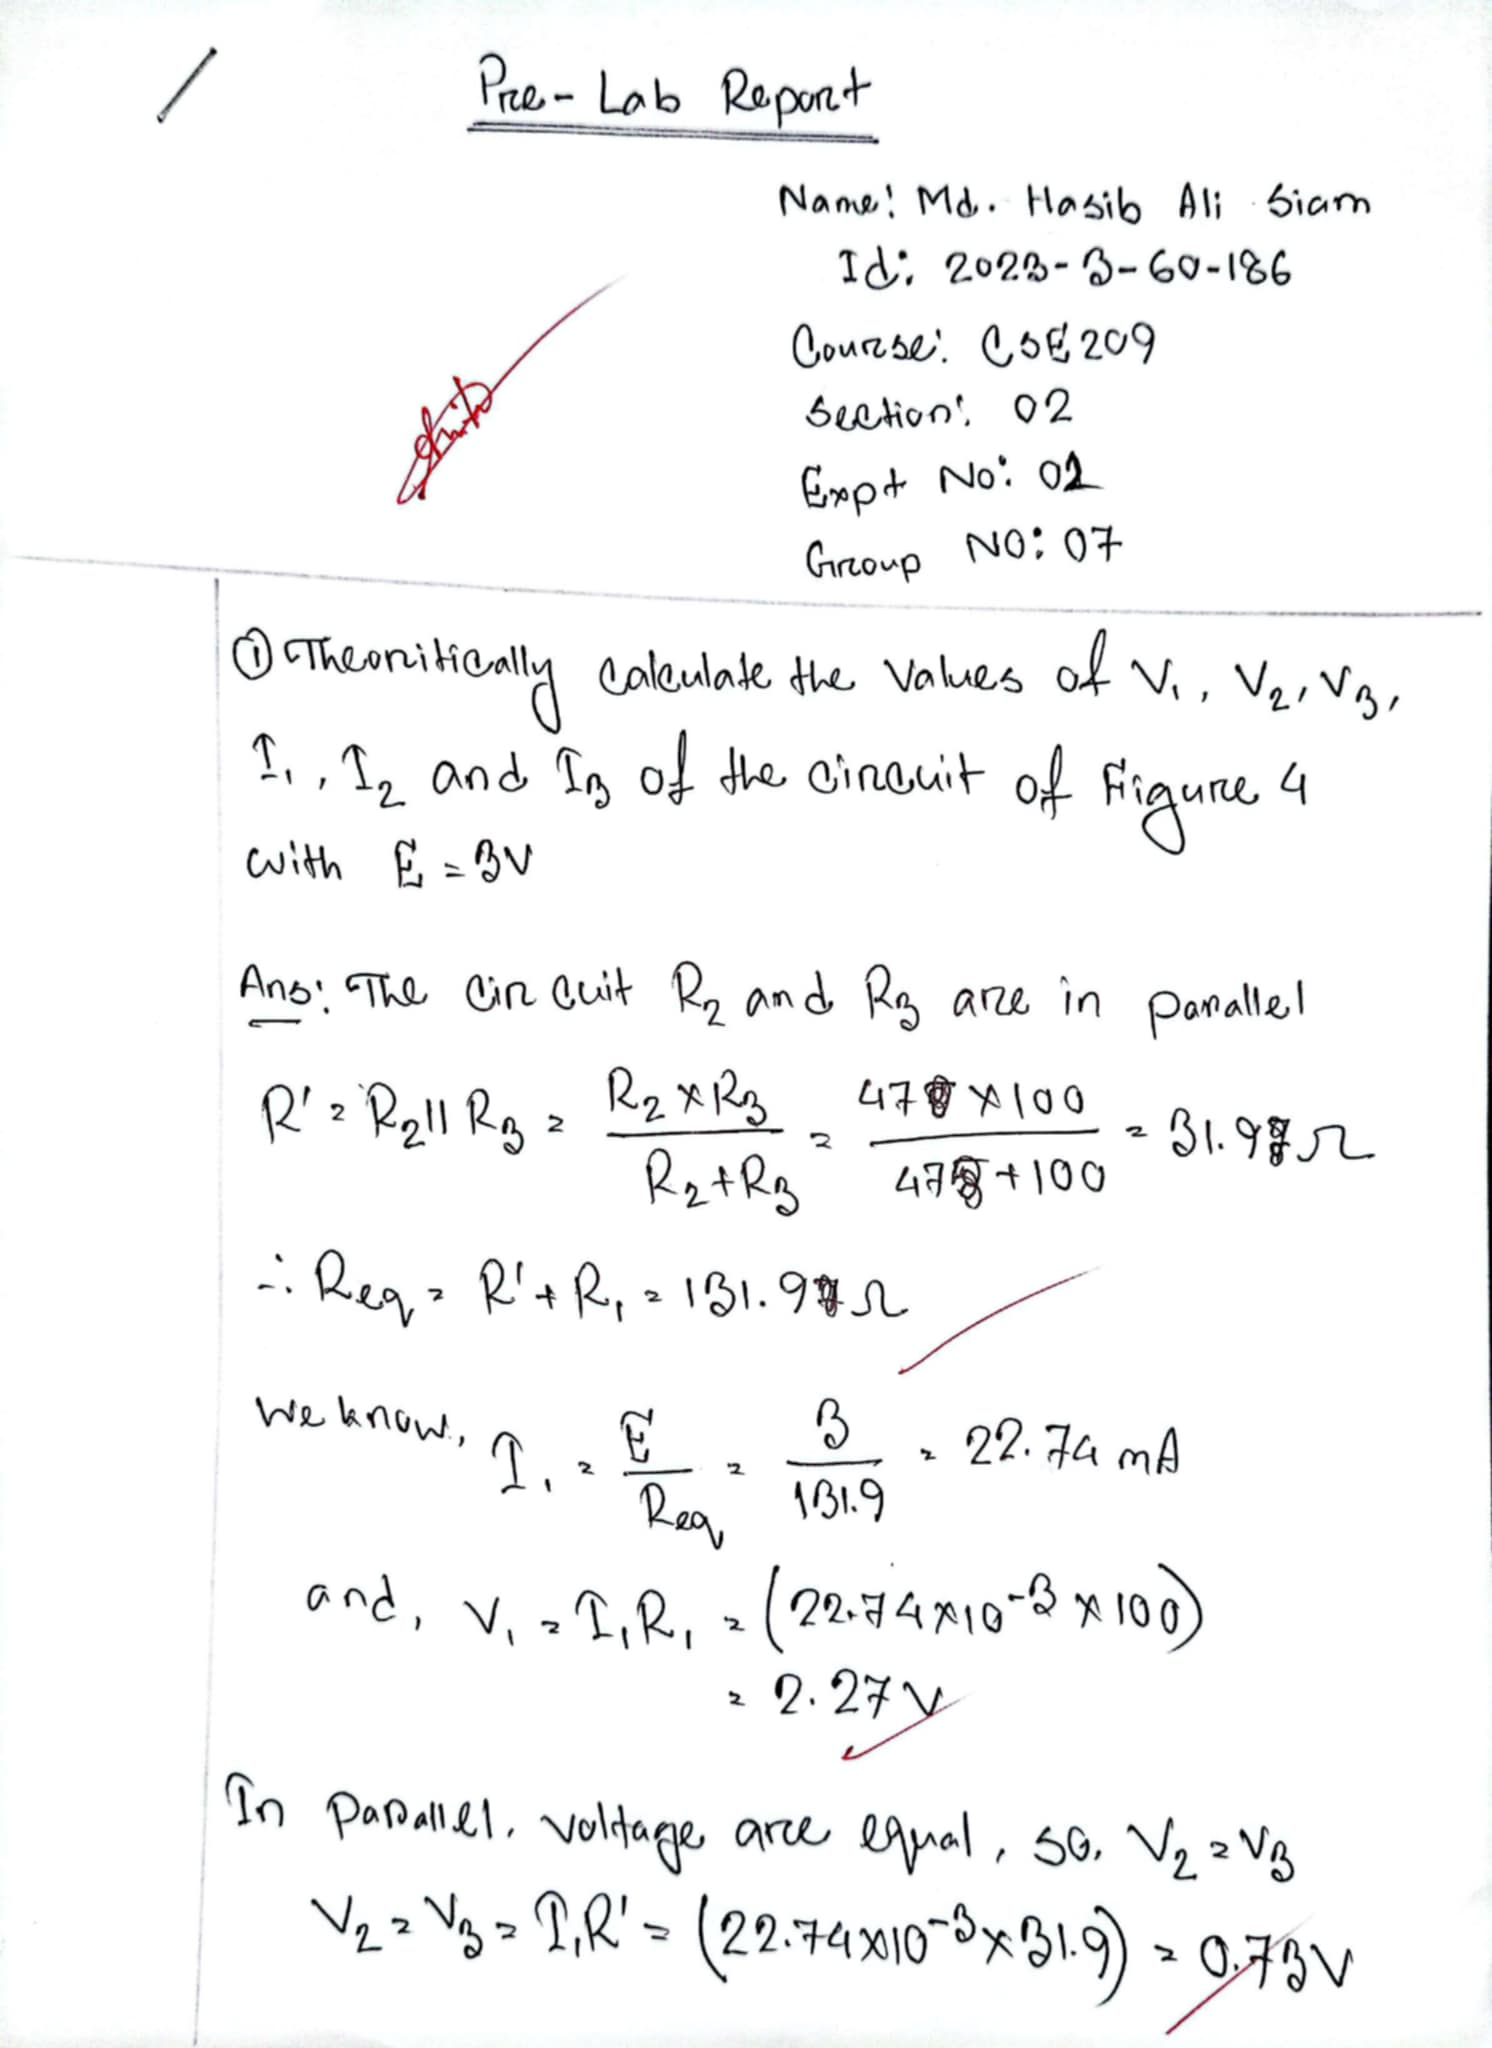 Pre-Lab Report
Name: Md. Hasib Ali Siam
Id: 2023-3-60-186
Course: CSE209
Section: 02
Expt No: 02
Group NO: 07
① Theoritically calculate the values of V₁, V₂, V₃,
I₁, I₂ and I₃ of the circuit of Figure 4
with E = 3V
Ans: The circuit R₂ and R₃ are in parallel
R' = R₂ || R₃ = (R₂ × R₃)/(R₂ + R₃) = (47 × 100)/(47 + 100) = 31.9 Ω
∴ Req = R' + R₁ = 131.9 Ω
We know, I₁ = E/Req = 3/131.9 = 22.74 mA
and, V₁ = I₁R₁ = (22.74×10⁻³ × 100)
= 2.27 V
In parallel, voltage are equal, so, V₂ = V₃
V₂ = V₃ = I₁R' = (22.74×10⁻³ × 31.9) = 0.73V